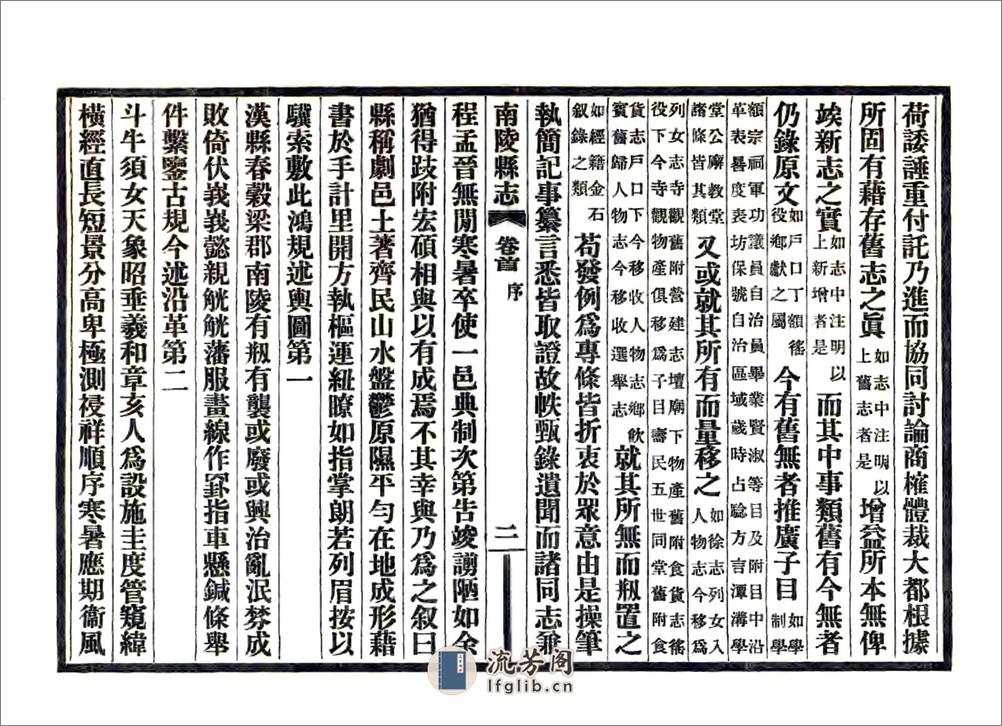 荷諉諈重付託乃進而協同討論商榷體裁大都根據
所固有藉存舊志之眞如志中注明以上舊志者是增益所本無俾
竢新志之實如志中注明以上新增者是而其中事類舊有今無者
仍錄原文如戶口丁額徭役鄉獻之屬今有舊無者推廣子目如學制學
額宗祠軍功議員自治員畢業賢淑等目及附目中沿
革表晷度表坊保號自治區域歲時占驗方言潭溝學
堂公廨教堂諸條皆其類又或就其所有而量移之如徐志列女入人物志今移爲
列女志寺觀舊附營建志壇廟下物產舊附食貨志徭
役下今寺觀物產俱移爲子目壽民五世同堂舊附食
貨志戶口下今移收人物志鄉飮賓舊歸人物志今移收選舉志就其所無而剏置之
如經籍金石敘錄之類苟發例爲專條皆折衷於眾意由是操筆
執簡記事纂言悉皆取證故帙甄錄遺聞而諸同志兼
南陵縣志 卷首 序 二
程孟晉無閒寒暑卒使一邑典制次第告竣謭陋如余
猶得跂附宏碩相與以有成焉不其幸與乃爲之叙曰
縣稱劇邑土著齊民山水盤鬱原隰平勻在地成形藉
書於手計里開方執樞運紐瞭如指掌朗若列眉按以
驥索敷此鴻規述輿圖第一
漢縣春穀梁郡南陵有剏有襲或廢或興治亂泯棼成
敗倚伏峩峩懿親觥觥藩服畫線作指車懸鍼條舉
件繫鑒古規今述沿革第二
斗牛須女天象昭垂羲和章亥人爲設施圭度管窺緯
橫經直長短景分高卑極測祲祥順序寒暑應期衞風
流芳阁
lfglib.cn